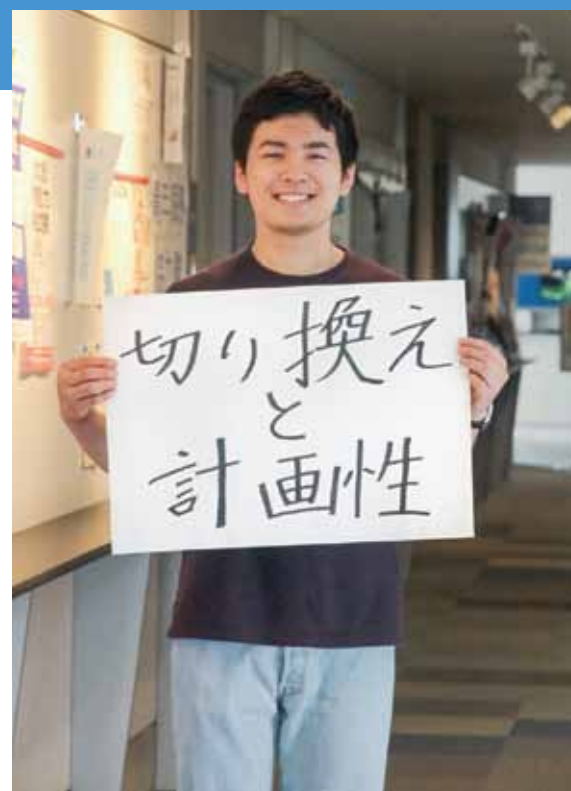 切り換え
と
計画性